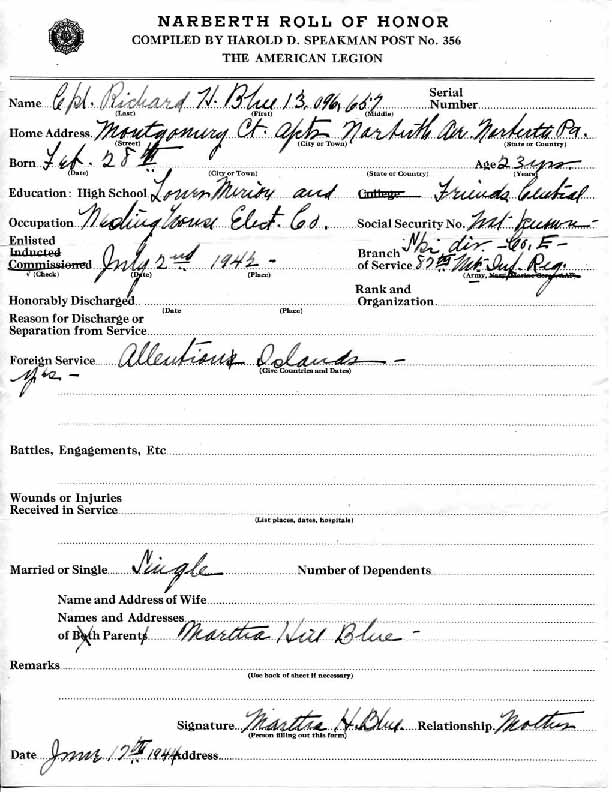 NARBERTH ROLL OF HONOR
COMPILED BY HAROLD D. SPEAKMAN POST No. 356
THE AMERICAN LEGION
Name Cpl. Richard H. Blue 13,096,657 Serial Number
(Last) (First) (Middle)
Home Address Montgomery Ct. Apts Narberth Av. Narberth Pa.
(Street) (City or Town) (State or Country)
Born Feb. 28th Age 23 yrs
(Date) (City or Town) (State or Country) (Years)
Education: High School Lower Merion and College Friends Central
Occupation Westinghouse Elect. Co. Social Security No. Not known
Enlisted
Inducted
Commissioned July 2nd 1942 - Branch of Service Ski div. - Co. E - 87th Mt. Inf. Reg.
√ (Check) (Date) (Place) (Army, Navy, Marine Corps,
Honorably Discharged Rank and Organization
(Date (Place)
Reason for Discharge or
Separation from Service
Foreign Service Alleutians Islands -
(Give Countries and Dates)
yes -
Battles, Engagements, Etc
Wounds or Injuries
Received in Service
(List places, dates, hospitals)
Married or Single Single Number of Dependents
Name and Address of Wife
Names and Addresses
of Both Parents Martha Hill Blue -
Remarks
(Use back of sheet if necessary)
Signature Martha H. Blue. Relationship Mother
(Person filling out this form)
Date June 17th 1944 Address